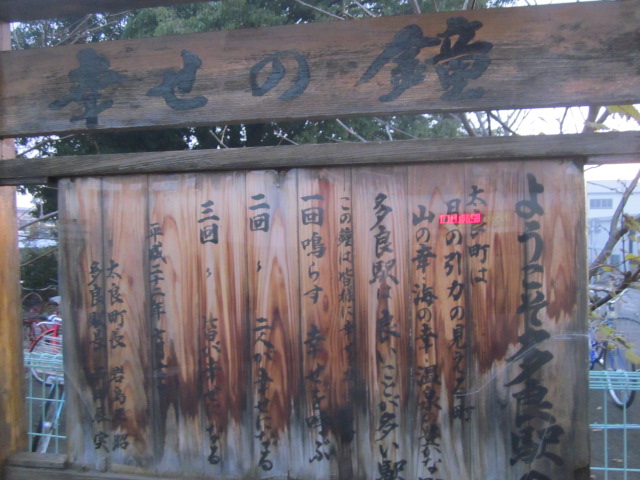 幸せの鐘
ようこそ多良駅
太良町は
月の引力の見える町
山の幸・海の幸・温泉
多良駅は良いことが多い駅
この鐘は皆様に幸せ
一回 鳴らす 幸せを呼ぶ
二回 〃 二人が幸せになる
三回 〃 幸せになる
平成二十二年
太良町長 岩島正昭
多良駅長